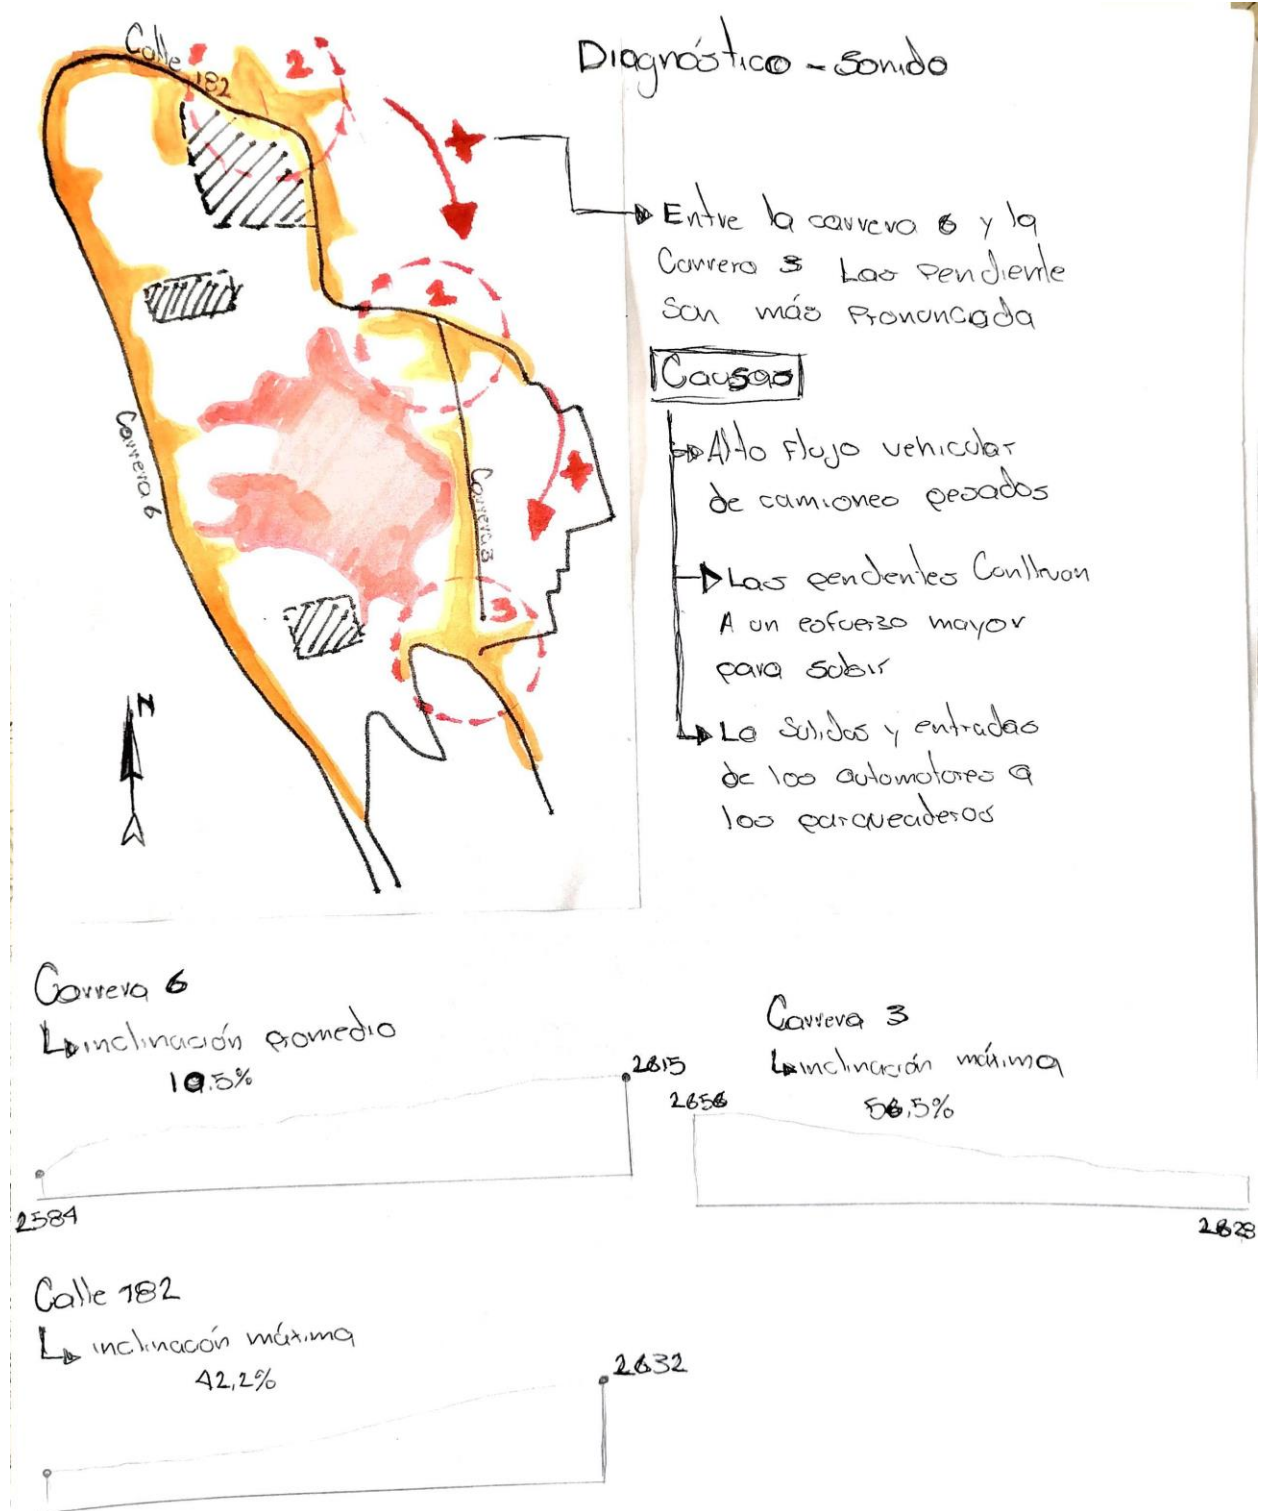 Diagnóstico - Sonido
Calle 182
2
Entre la carrera 6 y la
Carrera 3 Las Pendiente
Son más Pronuncada
2
Causas
Alto Flujo vehicular
de camiones pesados
Carrera 6
Carrera 3
Las pendientes Conllevan
A un esfuerzo mayor
para subir
3
N
La Salidas y entradas
de los automotores a
los parqueaderos
Carrera 6
inclinación promedio
2615
2584
Carrera 3
inclinación máxima
2656
56,5%
2628
Calle 182
inclinación máxima
42,2%
2632